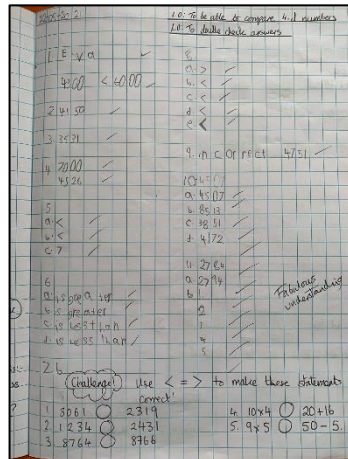 L.O: To be able to compare 4-d numbers
L.O: To double check answers
1 Eva
4300 < 6000
2 4130
3 3531
4 7000
4526
5
a. <
b. <
c. >
6
a. is greater
b. is greater
c. is less than
d. is less than
8
a. >
b. <
c. <
d. <
e. <
9. incorrect 4751
10.
a. 4507
b. 8513
c. 3851
d. 4172
11. 2784
a. 2794
b. 1
2
3
4
5
Fabulous
understanding
Challenge! Use < = > to make these statements
correct!
1. 3061 ○ 2319
2. 1234 ○ 2431
3. 8764 ○ 8766
4. 10x4 ○ 20+16
5. 9x5 ○ 50-5